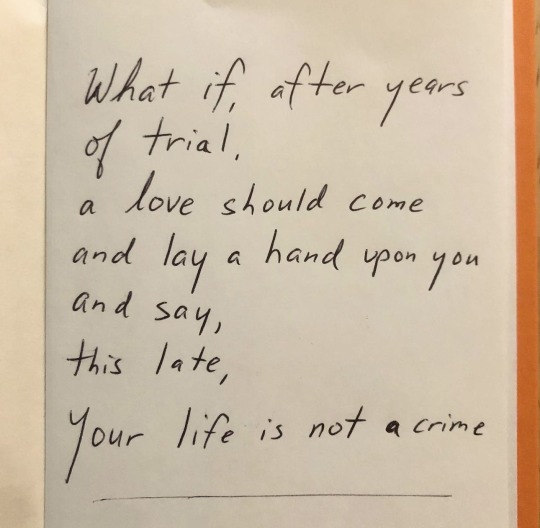 What if, after years
of trial,
a love should come
and lay a hand upon you
and say,
this late,
Your life is not a crime